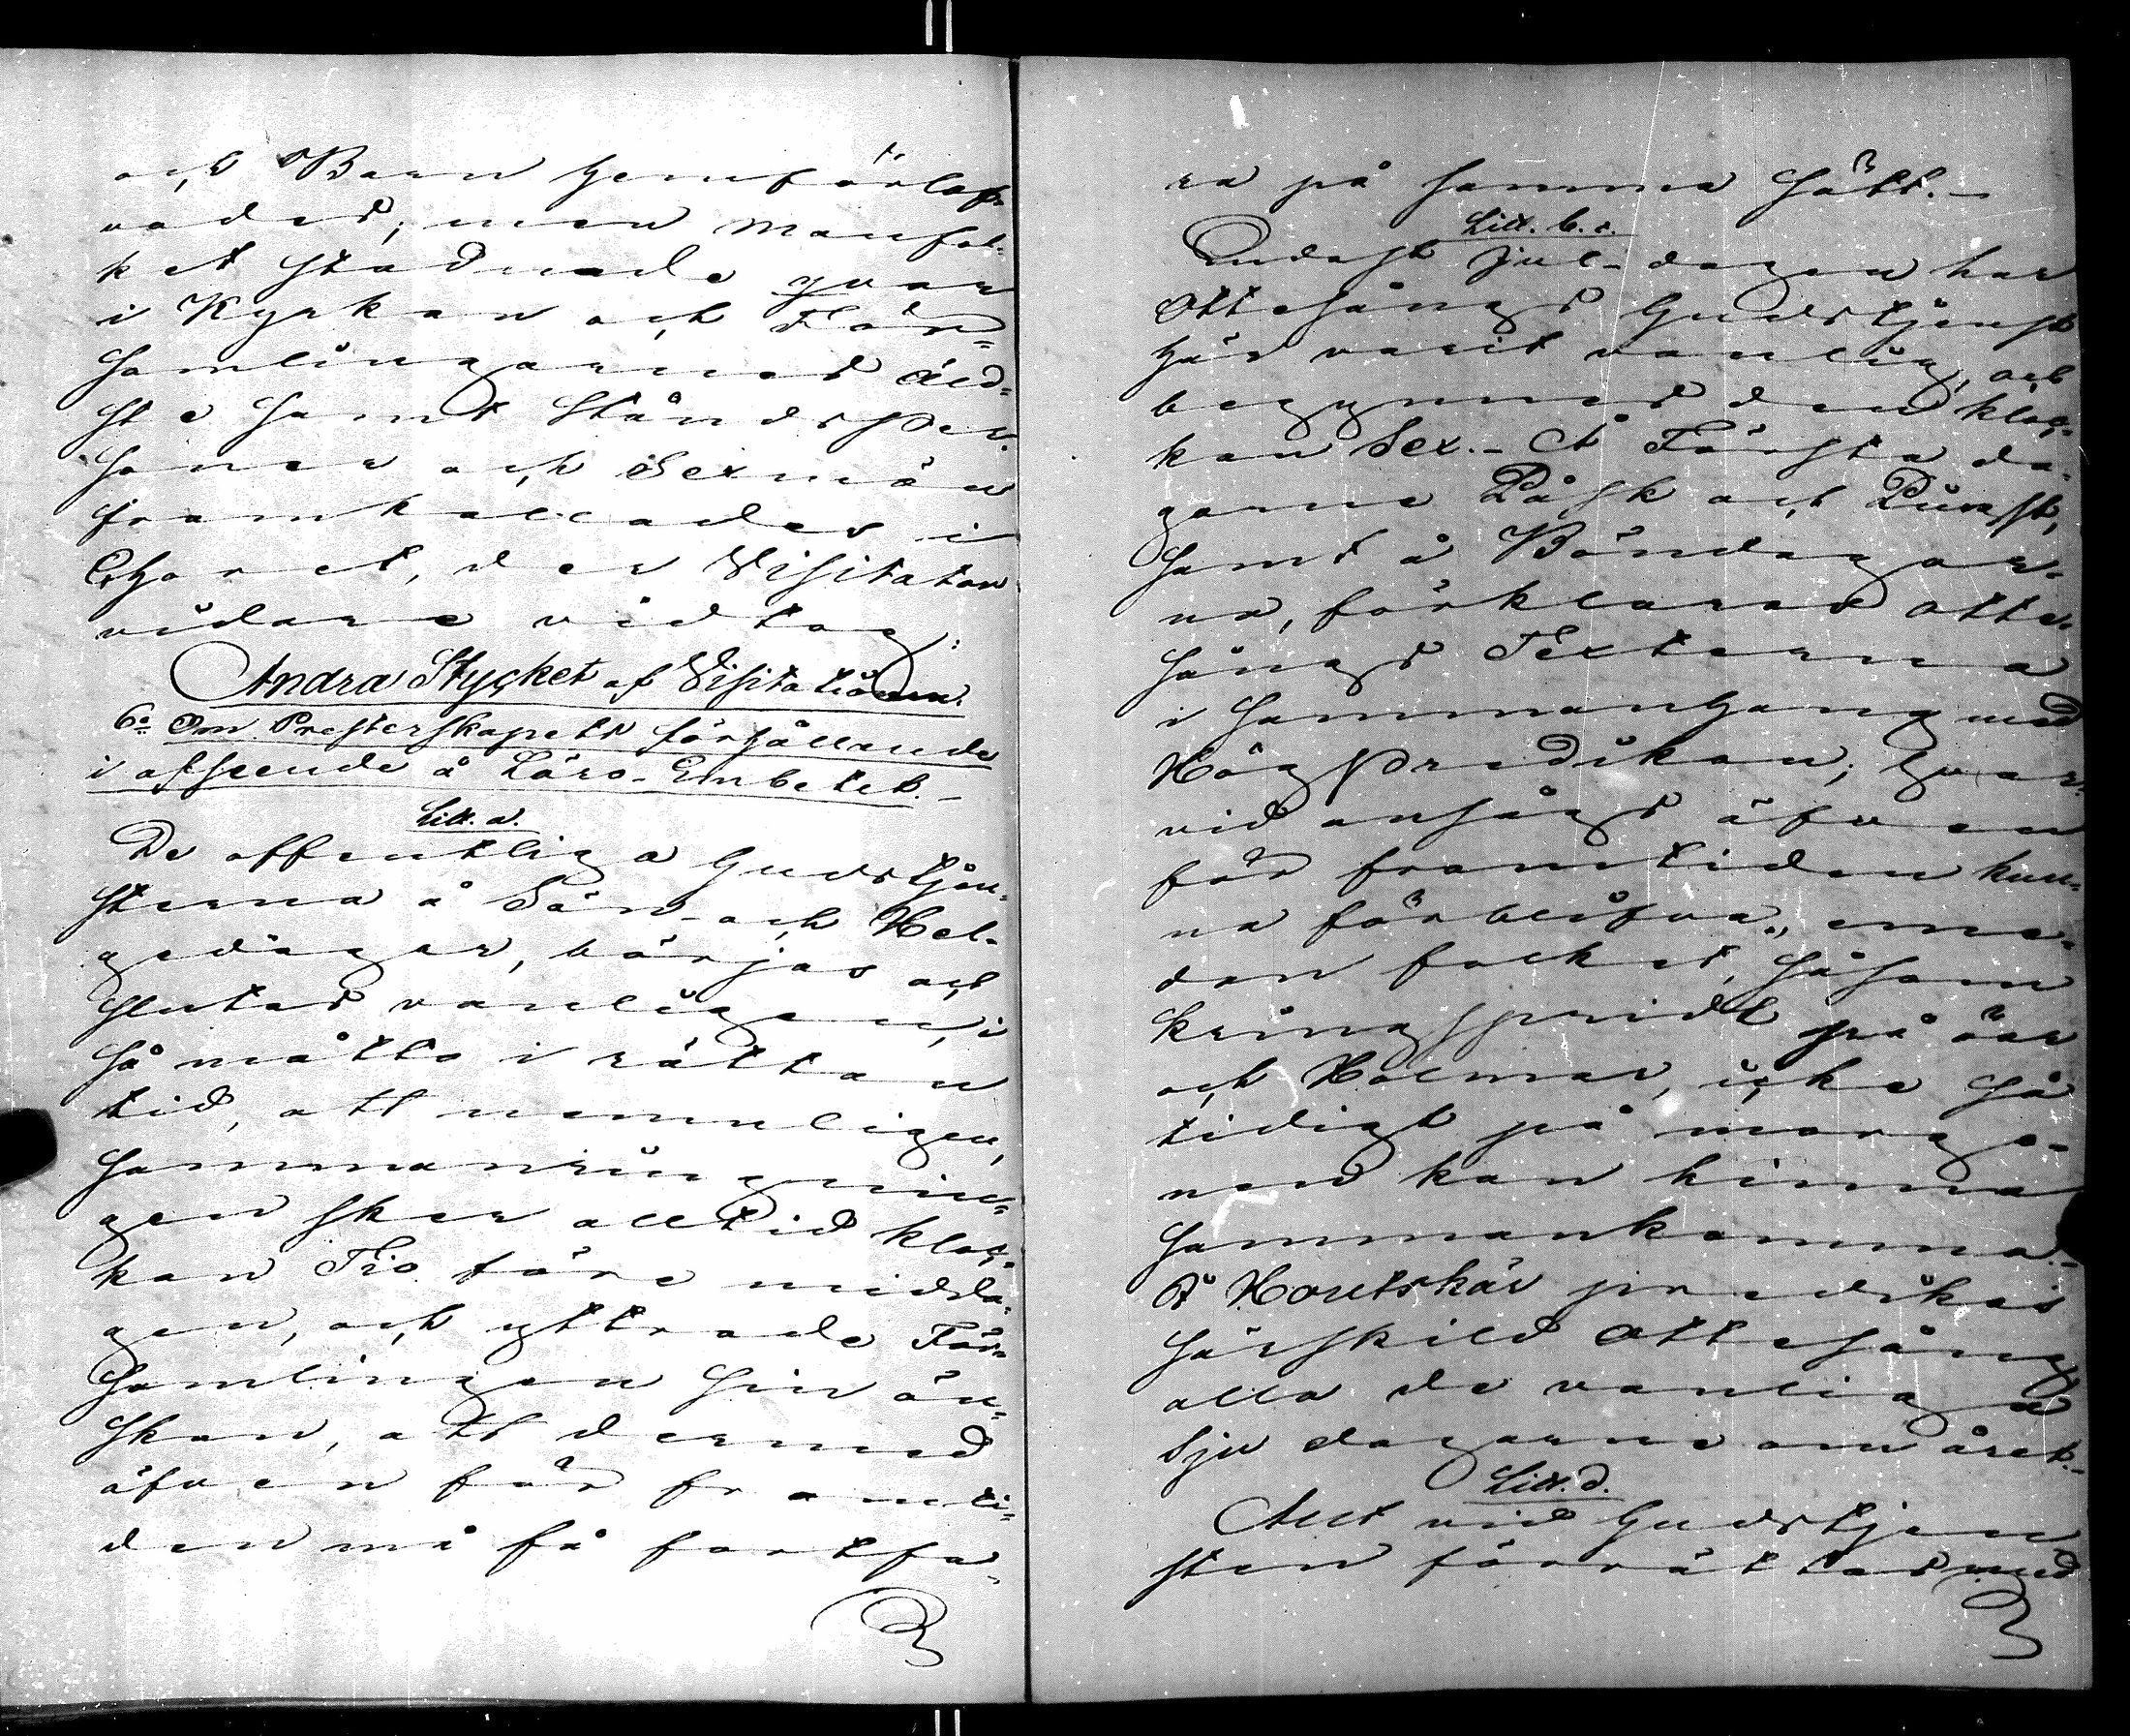 och Barn hemförlof-
vades; men Manfol-
ket stadnade qvar
i Kyrkan och För-
samlingarnes Äld-
ste samt Ståndsper-
soner och Sexmän
framkallades i
Choret, der Visitation
vidare vidtog:
Andra Stycket af Visitationen.
6o Om Presterskapets förhållande
i afseende å Läro-Embetet.-
Litt. a.
De offentliga Gudstjen-
sterna å Sön- och Hel-
gedagar, börjas och
slutas vanligen, i
så måtto i rättan
tid, att nemnligen,
sammanringnin-
gen sker alltid kloc-
kan Tio före midda-
gen, och yttrade För-
samlingen sin ön-
skan, att dermed
äfven för framti-
den må få fortfa-
ra på samma sätt.-
Litt. b. c.
Endast Jul-dagen har
Ottesångs Gudstjenst
här varit vanlig, och
begynnes den kloc-
kan Sex.- Å Första da-
garne Påsk och Pingst,
samt å Böndagar-
na, förklaras Otte-
sångs Texterna
i sammanhang med
Högpredikan; hvar-
vid ansågs äfven
för framtiden kun-
na förblifva, eme-
dan folket, såsom
kringspridt på öar
och Holmar, icke så
tidigt på morgo-
nen kan hinna
sammankomma.-
Å Houtskär predikas
särskild Ottesång
alla de vanliga
sju dagarne om året.-
Litt. d.
Allt vid Gudstjen
sten förrättas med